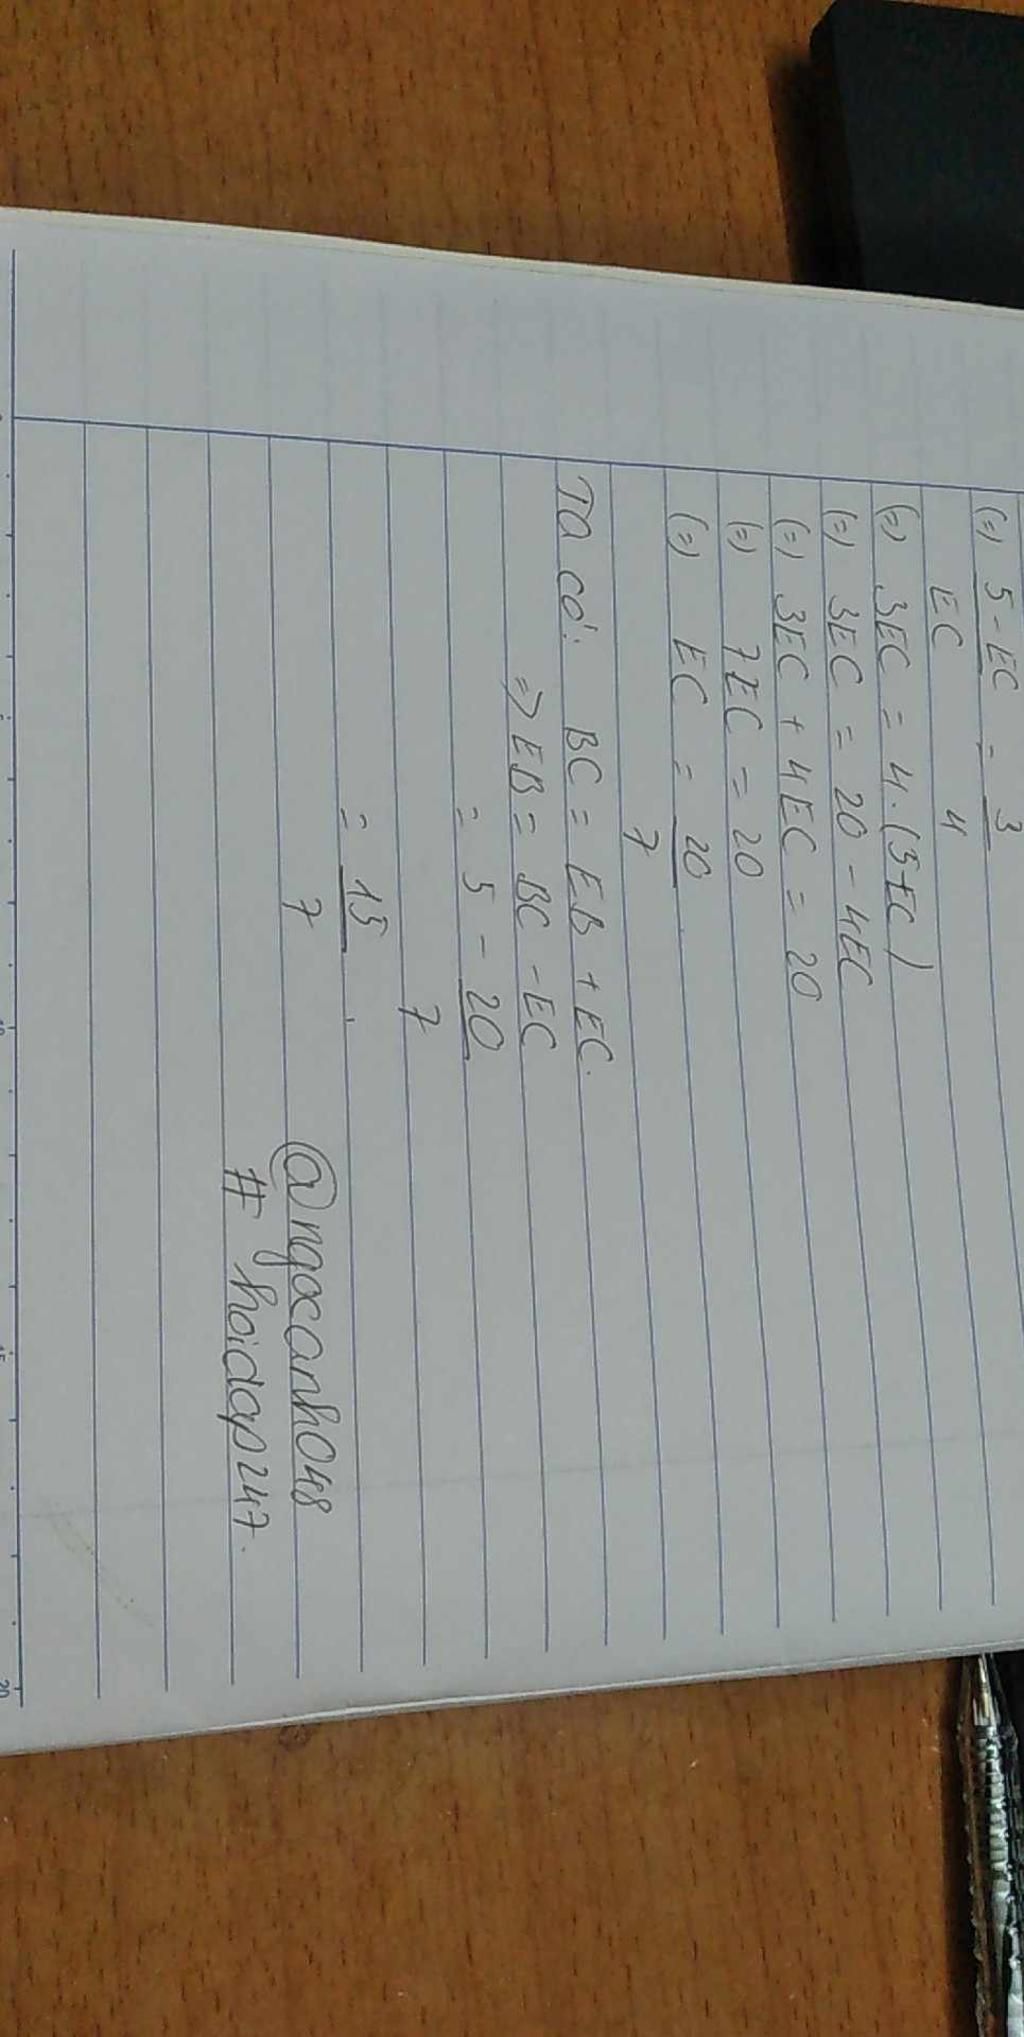 (=) 5-EC/EC = 3/4
(=) 3EC = 4.(5-EC)
(=) 3EC = 20 - 4EC
(=) 3EC + 4EC = 20
(=) 7EC = 20
(=) EC = 20/7
Ta có: BC = EB + EC.
=> EB = BC - EC
= 5 - 20/7
= 15/7.
@ngocanh048
# hoidap247.